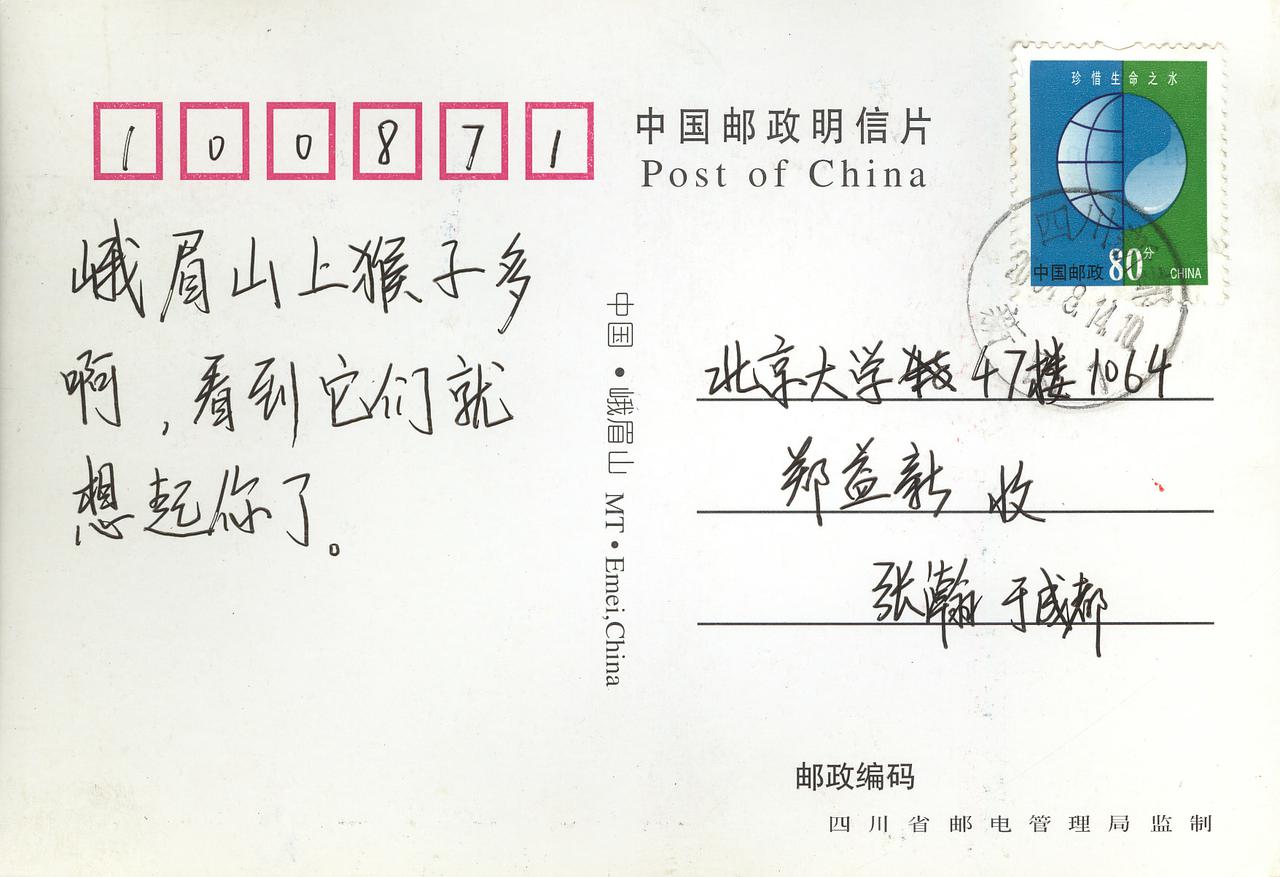 100871
中国邮政明信片
Post of China
珍惜生命之水
中国邮政 80分 CHINA
四川
8.14.10
峨眉山上猴子多
啊，看到它们就
想起你了。
中国·峨眉山 MT·Emei,China
北京大学 47楼 1064
郑益新 收
张瀚 于成都
邮政编码
四川省邮电管理局监制